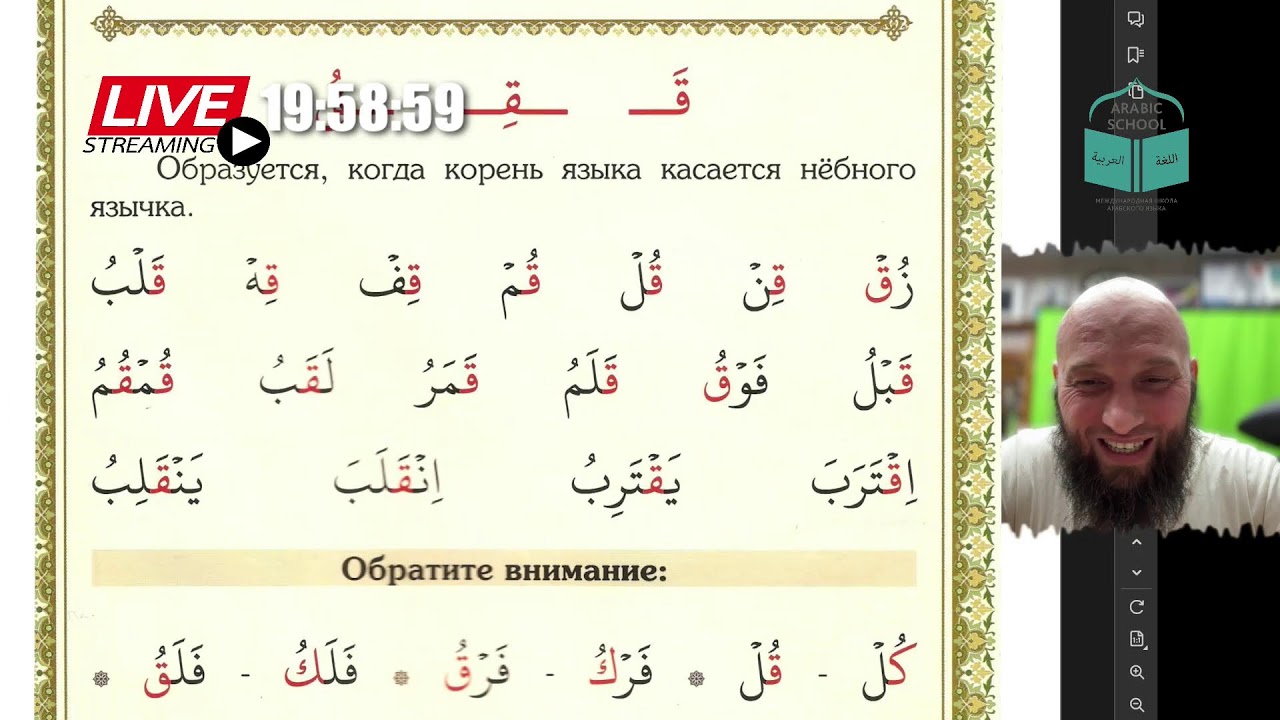 قَـ ـقِـ ـقُ
LIVE 19:58:59
STREAMING
Образуется, когда корень языка касается нёбного
язычка.
زُقْ قِنْ قُلْ قُمْ قِفْ قِهْ قَلْبُ
قَبْلُ فَوْقُ قَلَمُ قَمَرُ لَقَبُ قُمْقُمُ
اِقْتَرَبَ يَقْتَرِبُ اِنْقَلَبَ يَنْقَلِبُ
Обратите внимание:
كُلْ - قُلْ * فَرْكُ - فَرْقُ * فَلَكُ - فَلَقُ *
ARABIC
SCHOOL
العربية اللغة
МЕЖДУНАРОДНАЯ ШКОЛА
АРАБСКОГО ЯЗЫКА
1:1